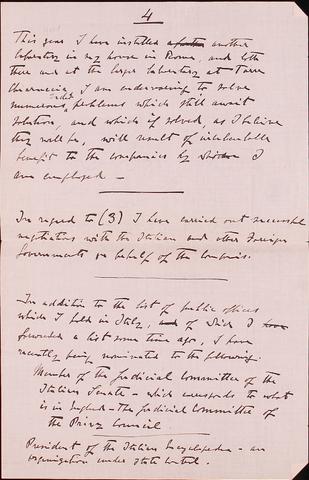 4
This year I have installed another
laboratory in my house in Rome, and both
there and at the larger laboratory at Torre
Chiaruccia, I am endeavouring to solve
numerous radio problems which still await
solution, and which if solved, as I believe
they will be, will result of incalculable
benefit to the companies by which I
am employed —
In regard to (3) I have carried out successful
negotiations with the Italian and other Foreign
Governments on behalf of the companies.
In addition to the list of public offices
which I hold in Italy, of which I
forwarded a list some time ago, I have
recently being nominated to the following:
Member of the Judicial Committee of the
Italian Senate – which corresponds to what
is in England – the Judicial Committee of
the Privy Council
President of the Italian Encyclopedia – an
organization under state control.